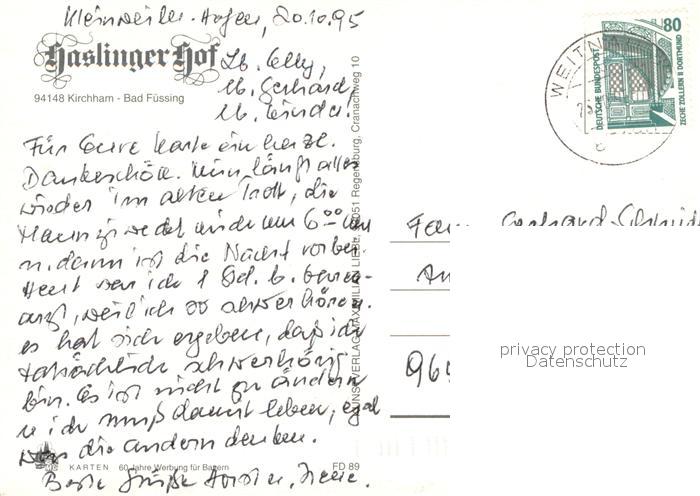 Kleinweiler-Hofen, 20.10.95
Haslinger Hof
94148 Kirchham - Bad Füssing
Lb. Elly,
lb. Gerhard,
lb. Kinder.
Für Eure Karte ein herzl.
Dankeschön. Nun läuft alles
wieder im alten Trott, die
Hanni weckt mich um 6.00 Uhr
u. dann ist die Nacht vorbei.
Heut war ich 1 Std. b.
arzt, weil ich so schwer höre.
es hat sich ergeben, daß ich
tatsächlich schwerhörig
bin. Es ist nicht zu ändern
u ich muß damit leben, egal
was die andern denken.
Beste Grüße
KARTEN 60 Jahre Werbung für Bayern FD 89
KUNSTVERLAG MAXIMILIAN LIEBL, 93051 Regensburg, Cranachweg 10
WEITNAU
80
DEUTSCHE BUNDESPOST
ZECHE ZOLLERN II DORTMUND
Fam. Gerhard Schmid
privacy protection
Datenschutz